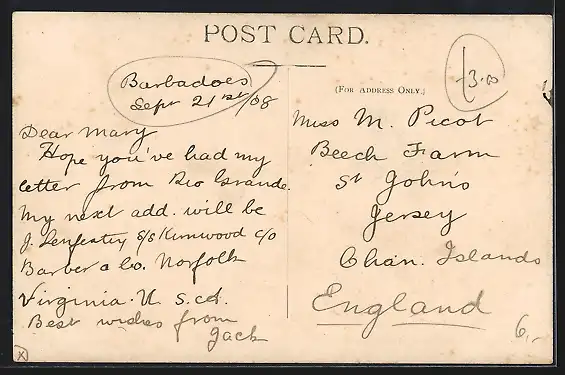 POST CARD.
Barbadoes
Sept 21st/08
Dear Mary
Hope you've had my
letter from Rio Grande.
My next add. will be
J. Lenfestey S/S Kirnwood C/o
Barber & Co. Norfolk
Virginia. U.S.A.
Best wishes from
Jack
(FOR ADDRESS ONLY.)
Miss M. Picot
Beech Farm
St John's
Jersey
Chan. Islands
England
3.00
6,-
x